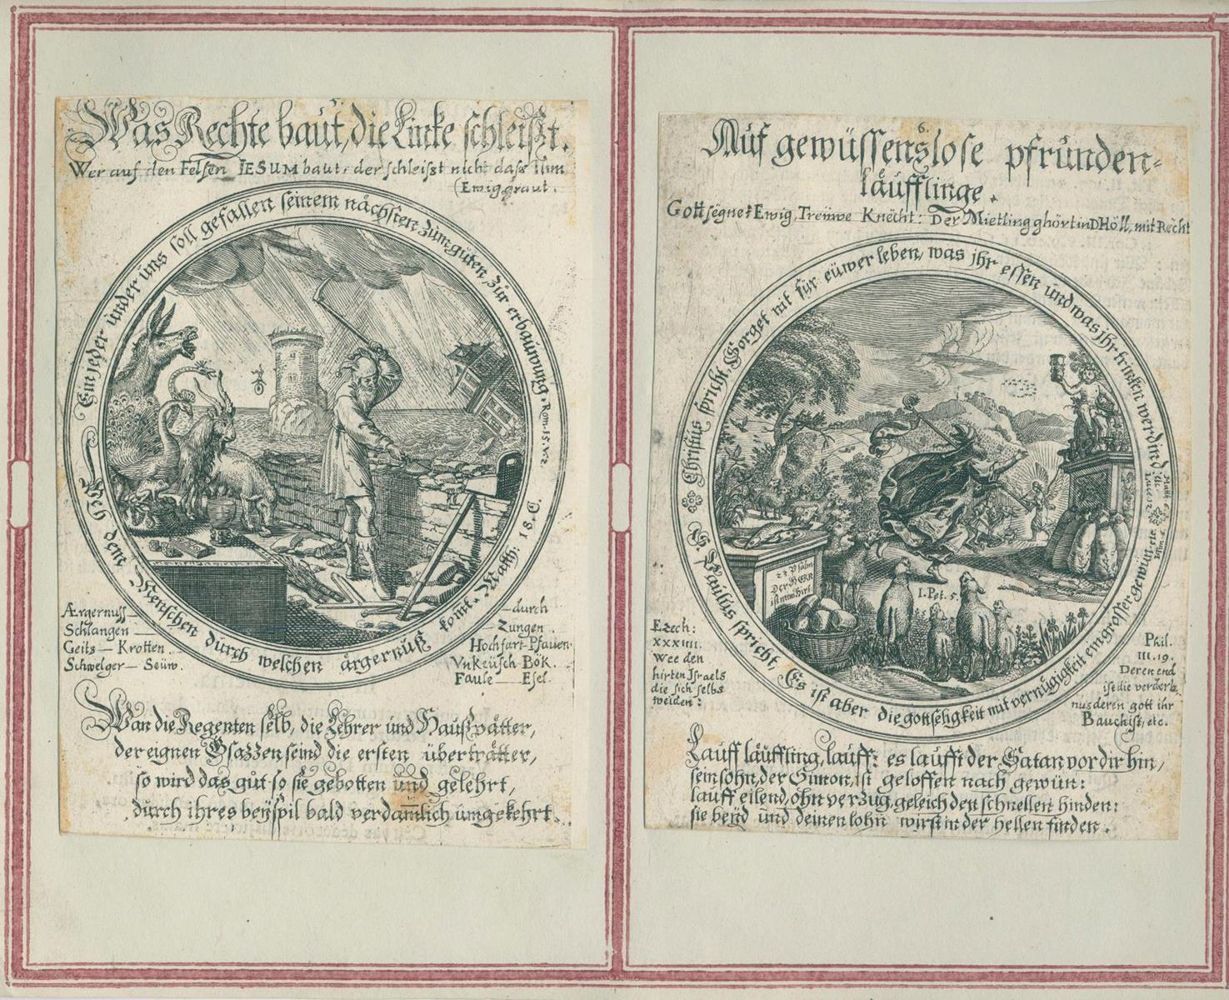 Was Rechte baut, die Lincke schleißt.
Wer auf den Felsen IESUM baut: der schleisst nicht dass Ihm
(Ewig graut.
Ein jeder under uns soll gefallen seinem nächsten zum guten, zur erbauwung. Rom. 15. v. 2.
Wehe dem Menschen durch welchen ärgernuß komt. Matth: 18. C.
Ærgernuss — durch
Schlangen — Zungen.
Geits — Krotten. Hochfart-Pfauen.
Schwelger — Seüw. Unkeüsch Bök.
Faule — Esel.
Wan die Regenten selb, die Lehrer und Haußvätter,
der eignen Gsazzen seind die ersten überträtter,
so wird das gut so sie gebotten und gelehrt,
durch ihres beÿspil bald verdamlich umgekehrt.
6.
Auf gewüssenslose pfrunden-
läufflinge.
Gott segnet Ewig, Treüwe Knecht: Der Mietling ghört in D Höll, mit Recht
Christus spricht Sorget nit für eüwer leben, was jhr essen und was jhr trinken werdind.
S. Paullus spricht Es ist aber die gottseligkeit mit vernügigkeit ein grosser gewin.
23 Psalm
Der HERR
ist mein hirt
1. Pet. 5.
Ezech:
XXXIIII.
Wee den
hirten Israels
die sich selbs
weiden:
Phil.
III. 19.
Deren end
ist die verderb-
nus deren gott ihr
Bauch ist, etc.
Lauff läuffling, lauff: es laufft der Satan vor dir hin,
sein sohn, der Simon, ist geloffen nach gewün:
lauff eilend, ohn verzug, geleich den schnellen hinden:
sie beÿd und deinen lohn wirst in der hellen finden.